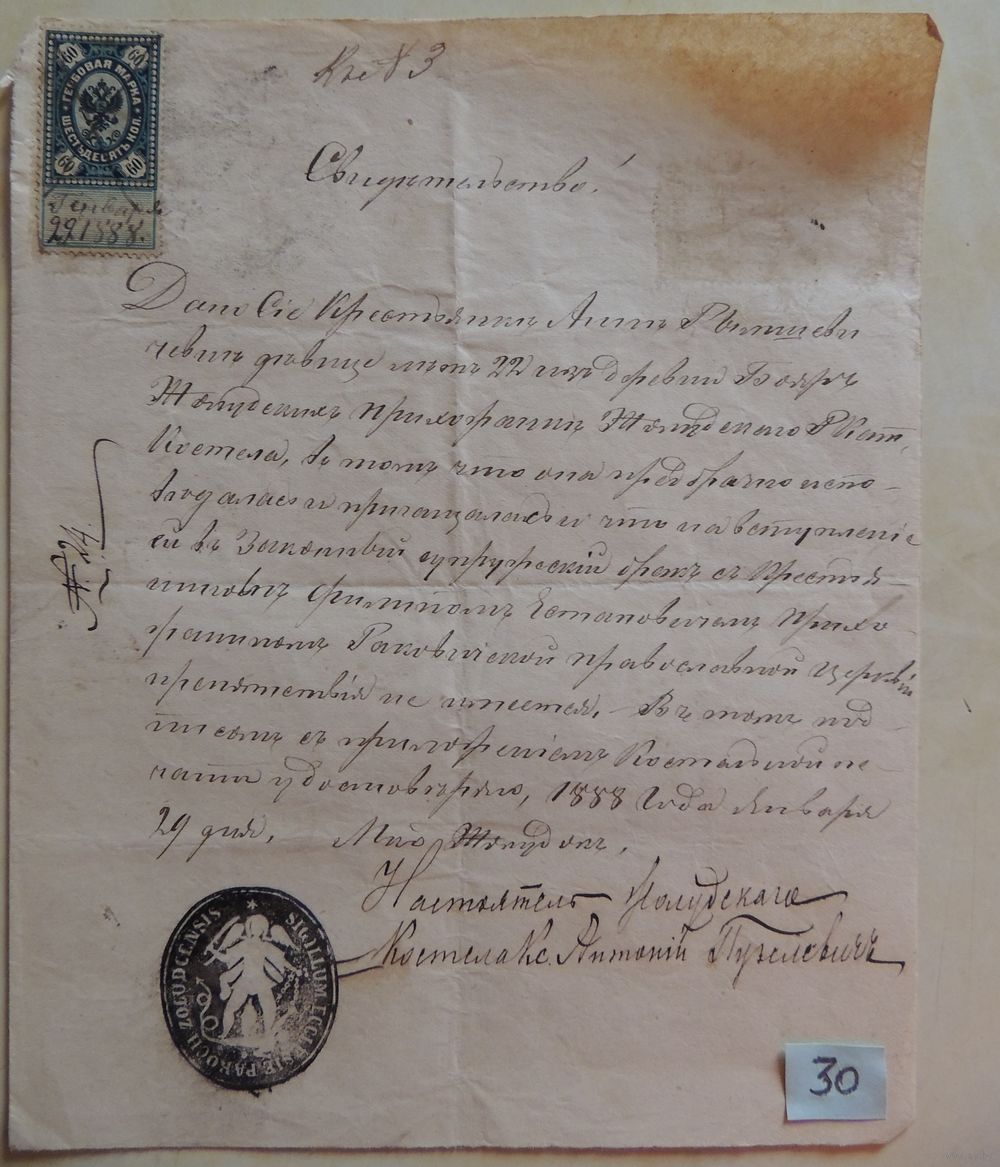 Къ № 3
60 60
ГЕРБОВАЯ МАРКА
ШЕСТЬДЕСЯТЪ КОП.
60 60
Генваря
29 1888.
Свидѣтельство.
Дано Сіе Крестьянкѣ Аннѣ
чевнѣ дѣвице лѣтъ 22 изъ деревни Бояръ
Жолудскихъ прихожанкѣ Жолудскаго Р Кат.
Костела, въ томъ что она предбрачно испо-
вѣдалась и приощалась и что на вступленіе
ей въ Законный супружескій бракъ съ Крестья-
ниномъ Филипомъ прихо-
жаниномъ православной церкви
препятствія не имѣется. – Въ томъ под-
писомъ съ приложеніемъ Костельной пе-
чати удостовѣряю, 1888 Года Января
29 дня, Жолудокъ.
№ 14.
Настоятель Жолудскаго
Костела Кс. Антоній
SIGILLUM ECCLESIÆ PAROCH ZOLUDCENSIS
30